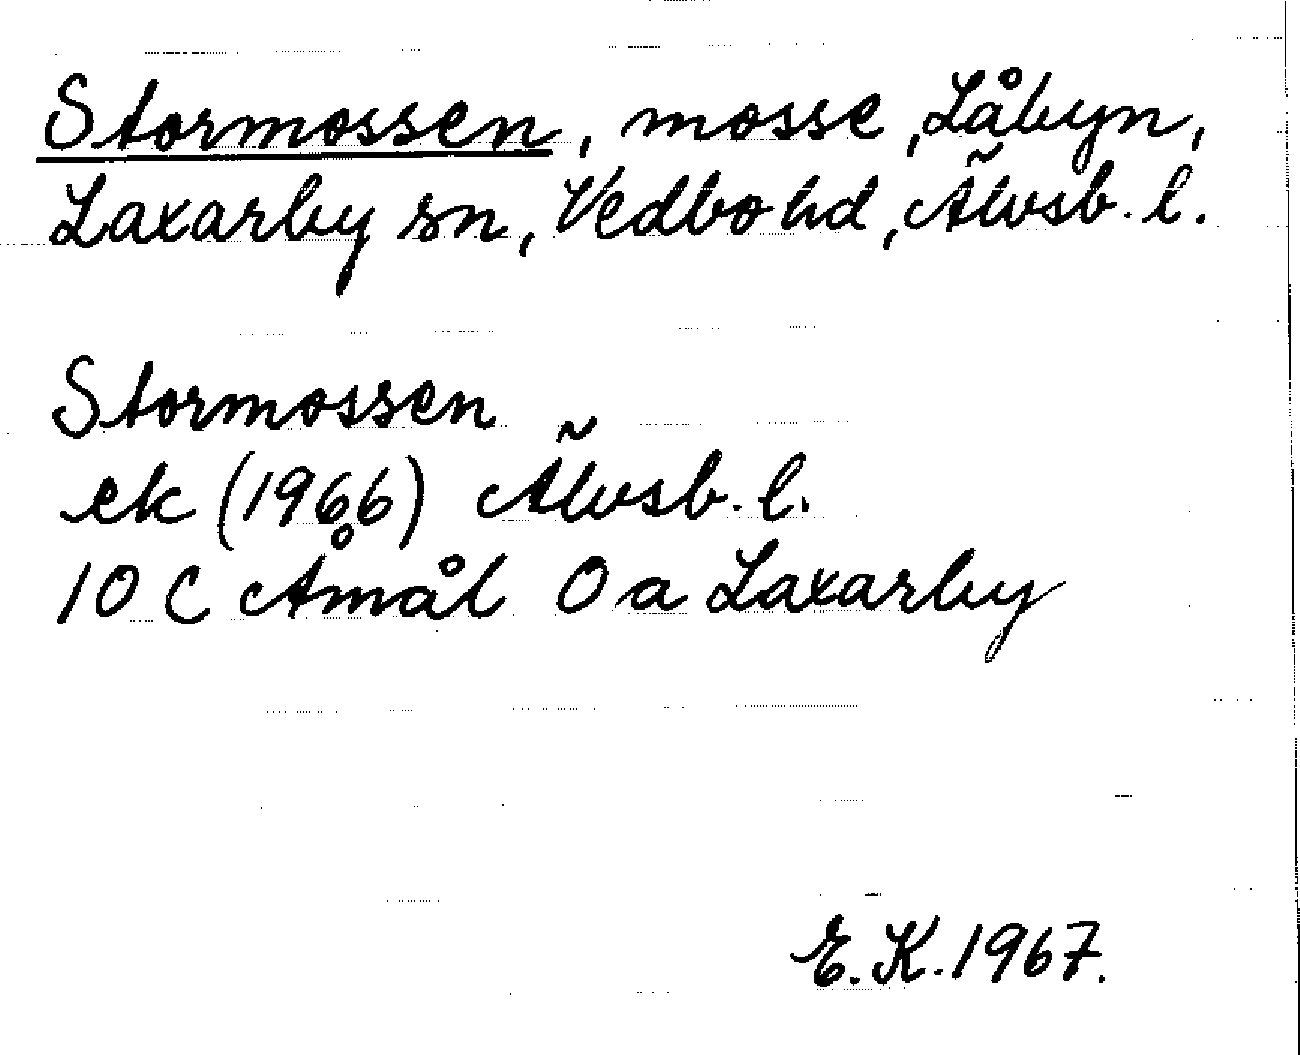 Stormossen, mosse, Låbyn,
Laxarby sn, Vedbo hd, Älvsb. l.
Stormossen
ek (1966) Älvsb. l.
10 C Åmål 0 a Laxarby
E. K. 1967.